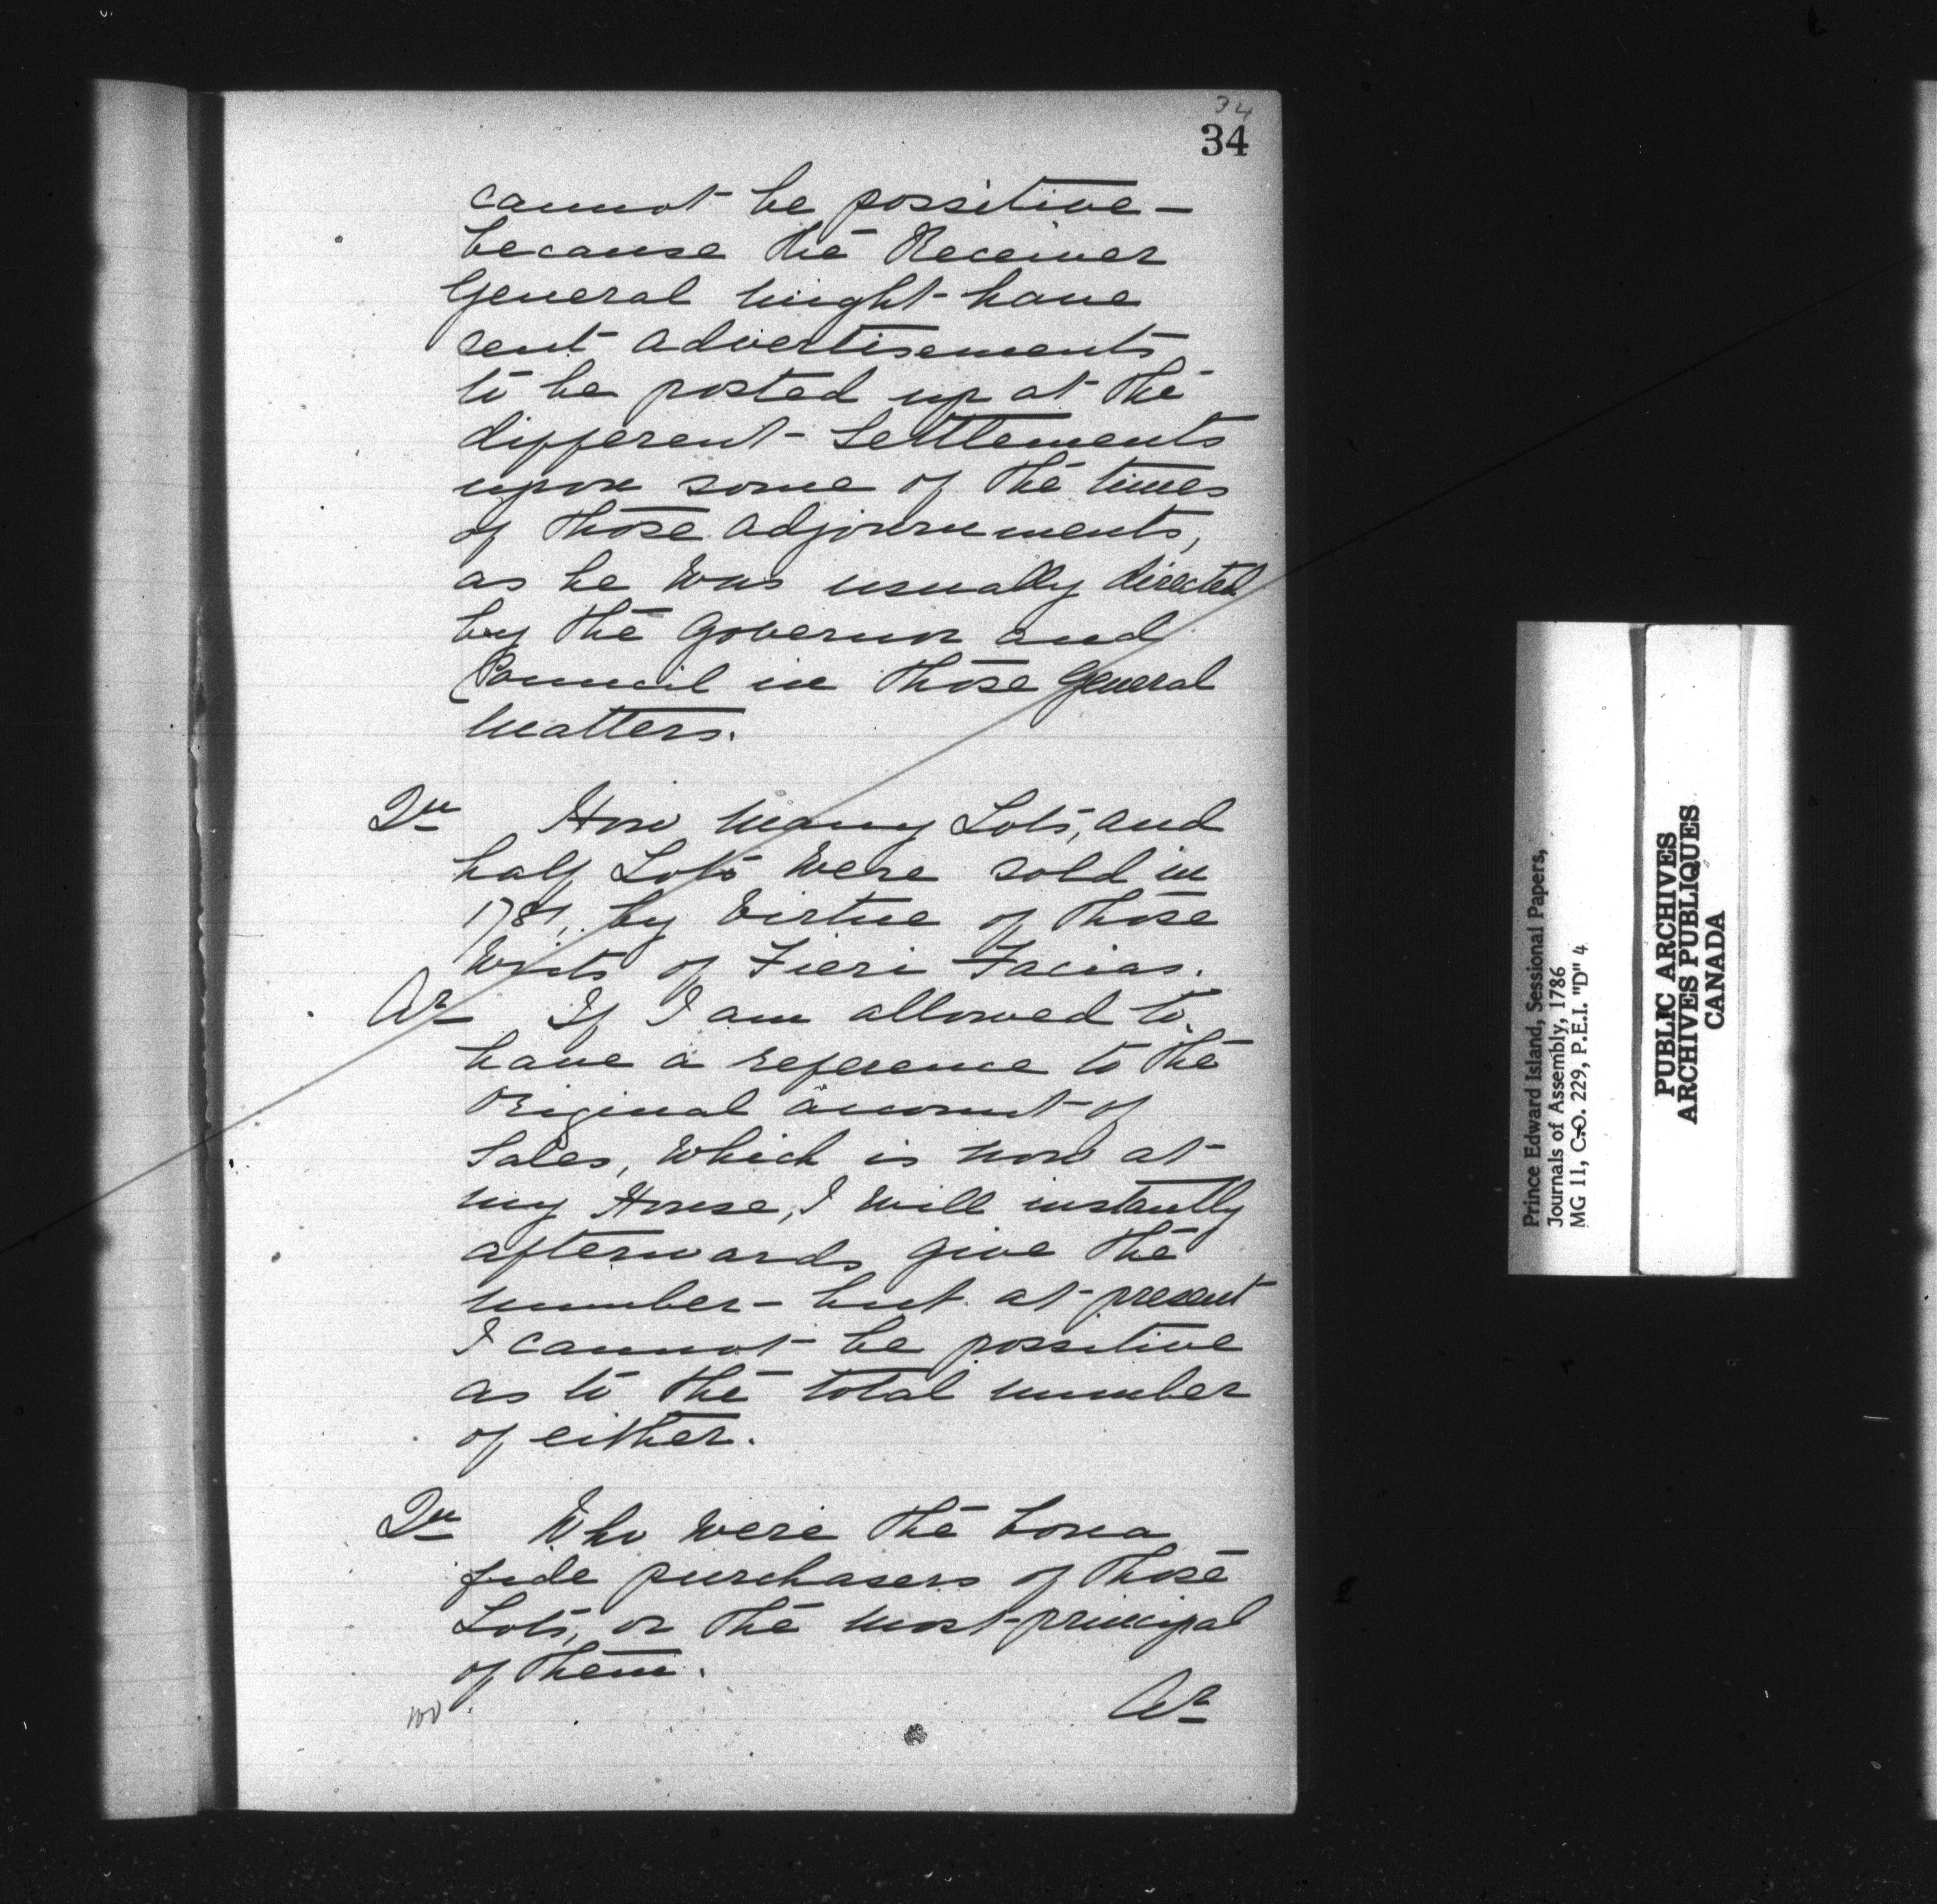 34
34
cannot be possitive —
because the Receiver
General might have
sent advertisements
to be posted up at the
different Settlements
upon some of the times
of those adjournments,
as he was usually directed
by the Governor and
Council in those General
Matters.
Qu How many Lots, and
half Lots Were sold in
1781, by Virtue of those
Writs of Fieri Facias.
Ar If I am allowed to
have a reference to the
Original account of
Sales, Which is now at
my House, I Will instantly
afterwards give the
number — but at present
I cannot be possitive
as to the total number
of either.
Qu Who Were the bona
fide purchasers of those
Lots, or the most principal
of them.
Ar
Prince Edward Island, Sessional Papers,
Journals of Assembly, 1786
MG 11, C.O. 229, P.E.I. "D" 4
PUBLIC ARCHIVES
ARCHIVES PUBLIQUES
CANADA